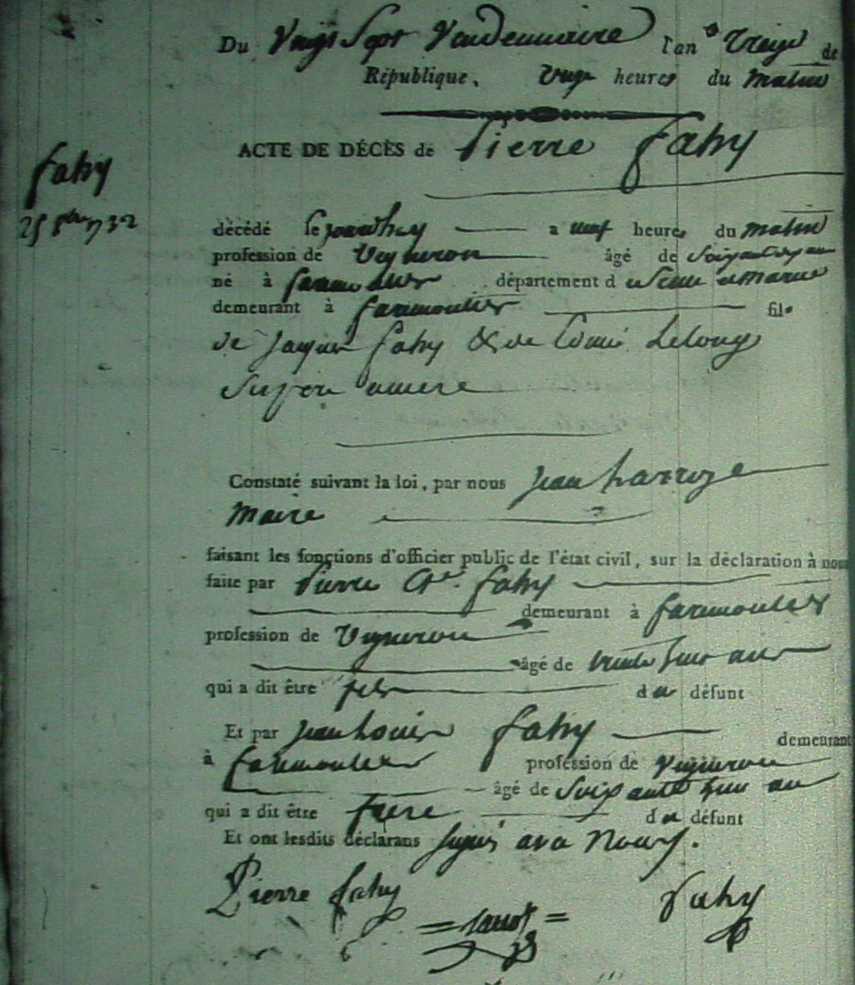 Du Vingt Sept Vendemiaire l'an Treize de
République, onze heures du matin
ACTE DE DÉCÈS de Pierre Fahy
fahy
décédé le jourdhuy a neuf heures du matin
profession de Vigneron âgé de
né à faremoutier département d e Seine et marne
demeurant à faremoutier fils
de Jaques fahy & de Louise Lelong
Ses pere et mere
Constaté suivant la loi, par nous Jean harroye
Maire
faisant les fonctions d'officier public de l'état civil, sur la déclaration à nous
faite par Pierre fahy
demeurant à faremoutier
profession de Vigneron
âgé de trente huit ans
qui a dit être fils du défunt
Et par Jean Louis fahy demeurant
à faremoutier profession de Vigneron
âgé de Soixante huit an
qui a dit être frere du défunt
Et ont lesdits déclarans signé avec Nous.
Pierre fahy
fahy